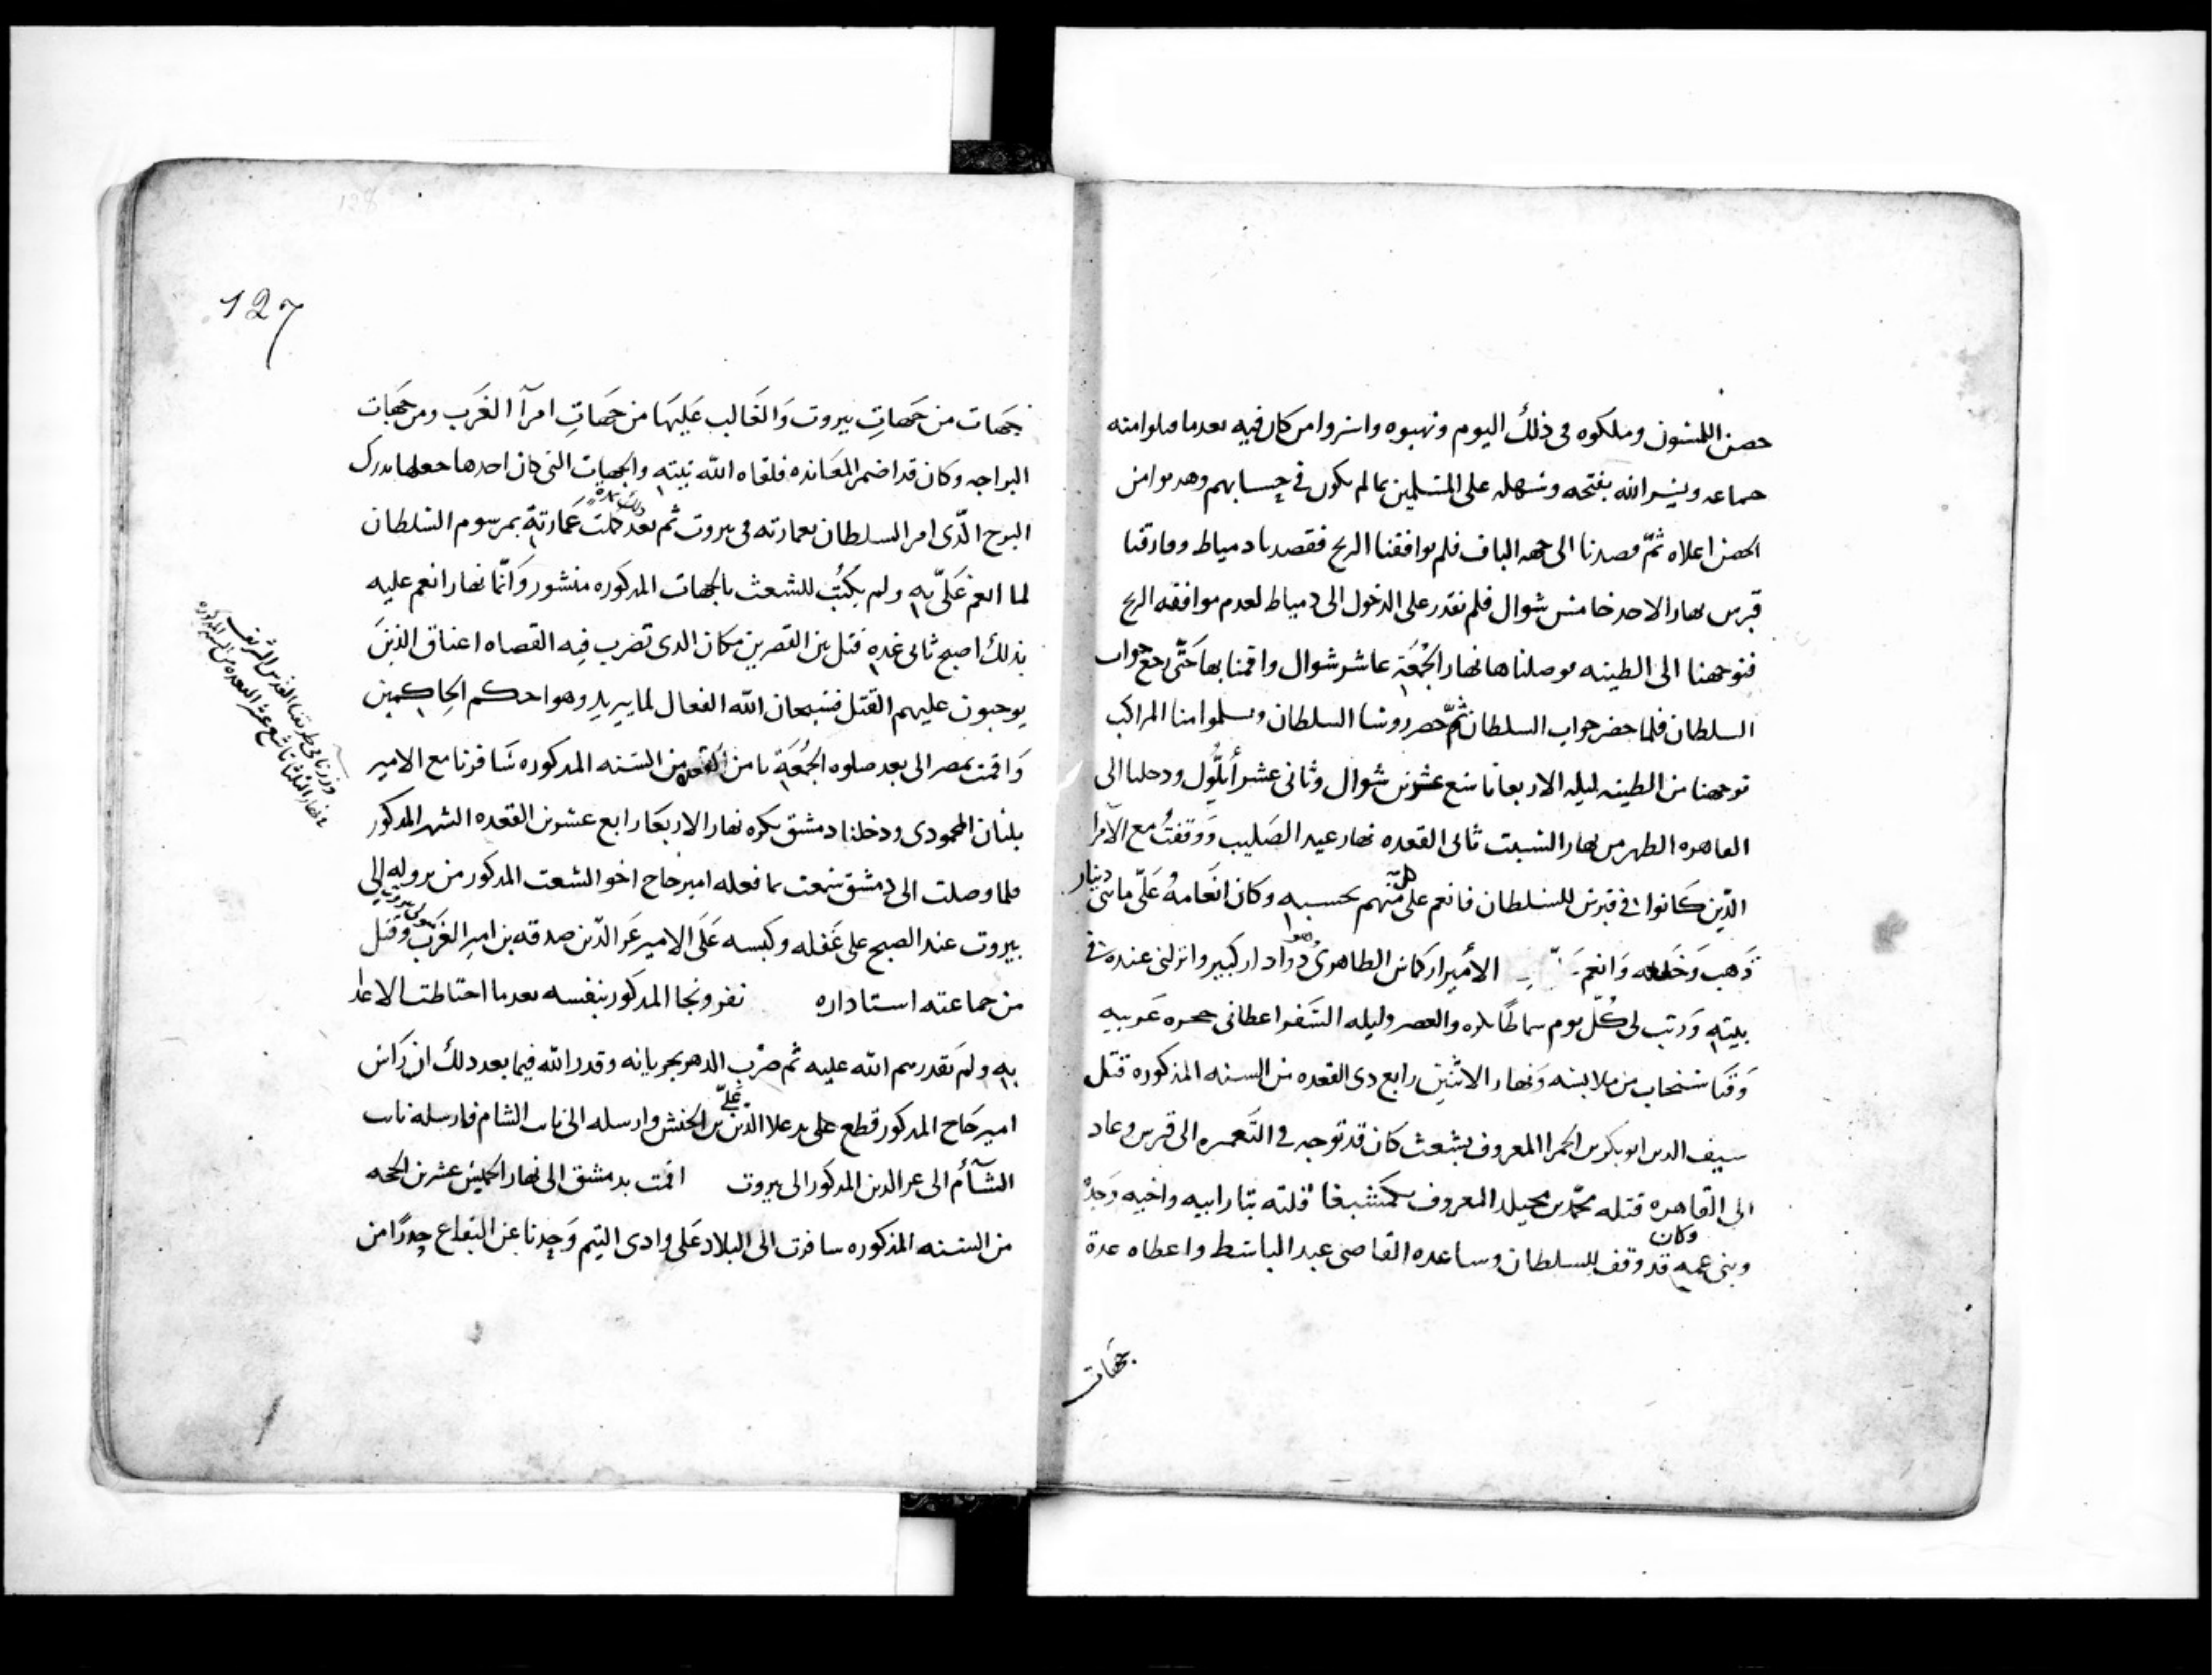 حصن اللمسون وملكوه في ذلك اليوم ونهبوه واسروا من كان فيه بعدما قتلوا منه
جماعه ويسر الله بفتحه وسهله على المسلمين بما لم يكون في حسابهم وهدموا من
الحصن اعلاه ثمّ قصدنا الى جهه الباف فلم يوافقنا الريح فقصدنا دمياط وفارقنا
قبرس نهار الاحد خامس شوال فلم نقدر على الدخول الى دمياط لعدم موافقه الريح
فتوجهنا الى الطينه فوصلناها نهار الجُمعَة عاشر شوال واقمنا بها حَتّى رجع جواب
السلطان فلما حضر جواب السلطان ثمّ حضر السلطان وسلموا منا المراكب
توجهنا من الطينه ليله الاربعا تاسع عشرين شوال وثانى عشر أيلُّول ودخلنا الى
القاهره الظهر من نهار السبت ثانى القعده نهار عيد الصَليب وَوقفتُ مع الأمرا
الذّين كَانوا في قبرس للسلطان فانعم على كل منهم بحسبه وكان انعَامهُ عَلىّ مائتى دينار
ذَهب وَخلعه وَانعم الأمير اركماس الظاهرى وهوا دوادار كبير وانزلنى عنده في
بيته وَرتب لى كُلّ يوم سماطًا بكره والعصر وليله السَفر اعطانى حجره عَربيه
وَقبَا سنجاب من ملابسه وَنهار الاثنين رابع دى القعده من السنه المذكوره قتل
سيف الدين ابو بكر بن الحمرا المعروف بشعث كان قد توجه في التَعميره الى قبرس وعاد
الى القاهره قتله محمّد بن المعروف بكمشبغا قتله بثار ابيه واخيه وَجدّه
وبنى عمه وكان قد وقف للسلطان وساعده القاضى عبد الباسط واعطاه عدة
جهات
127
جهَات من جهَاتِ بيروت وَالغَالب عَليهَا من جهَاتِ امرآ الغَرب ومن جهات
البراجه وكان قد اضمر المعَانده فلقاه الله نيته والجهات التى كان احدها جعلها بدرك
البرج الّذى امر السلطان بعمارته في بيروت ثم بعد ذلك كملت عمارته بمرسوم السُلطان
لما انعم عَلىّ به ولم يكتُب للشعث بالجهات المدكوره منشور وَانّما نهار انعم عليه
بذلك اصبح ثانى غده قتل بين القصرين مكان الدى تضرب فيه القصاه اعناق الذينَ
يوجبون عليهم القتل فسبحان الله الفعال لما يريد وهو احكم الحاكمين
وَاقمت بمصر الى بعد صلوه الجُمعَة ثامن القعده من السَنه المدكوره سَافرنا مع الامير
بلبان المحمودى ودخلنا دمشق بكره نهار الاربعَا رابع عشرين القعده الشهر المدكور
فلما وصلت الى دمشق سَمعت بما فعله امير حاج اخو الشعث المدكور من نزوله الى
بيروت عند الصبح على غَفله وكبسه عَلَى الامير عز الدّين صدقه بن امير الغَرب وقتل
من جماعته استاداره نفر ونجا المدكور بنفسه بعدما احتاطت الاعدا
به ولم تقدر سم الله عليه ثم ضرْب الدهر بجريانه وقدر الله فيما بعد دلك ان رَاس
امير حَاج المدكور قطع على يد علا الدّين علىّ بن الحنش وارسله الى نايب الشام فارسله نايب
الشآم الى عز الدين المدكور الى بيروت اقمت بدمشق الى نهار الخميس عشرين الحجه
من السَنه المذكوره سافرت الى البلاد عَلى وادى التيم وَحِدنا عن البقاع حذرًا من
وزرنا في طريقنا القدس الشريف
نهار الثلثا تاسع عشر القعده من الشهر المذكوره